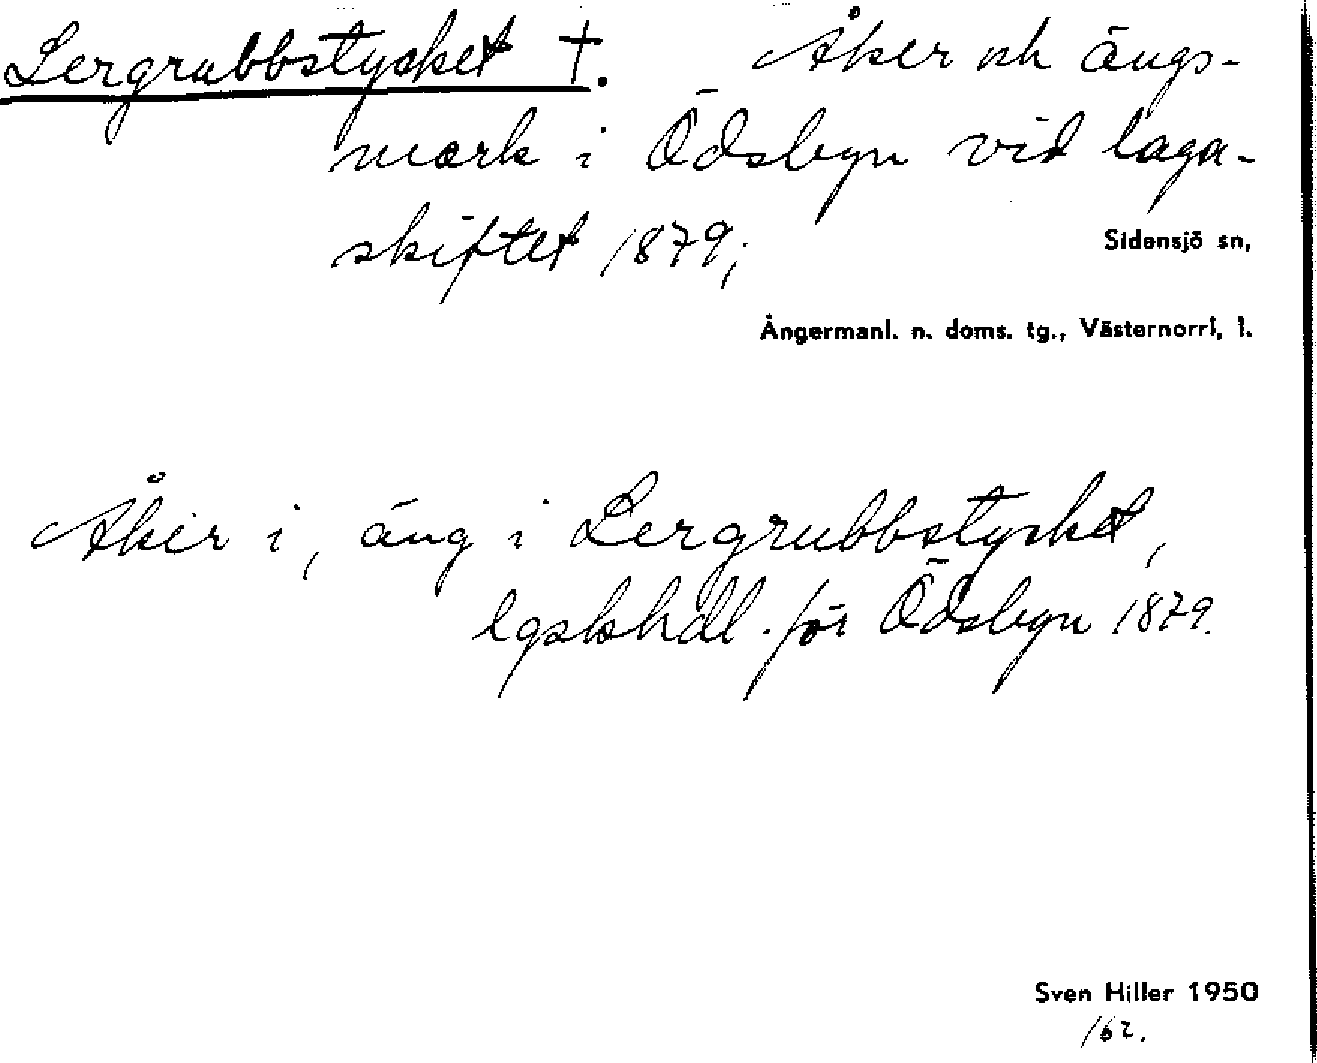 Lergrubbstycket †. Åker och ängs-
mark i Ödsbyn vid laga-
skiftet 1879;
Sidensjö sn,
Ångermanl. n. doms. tg., Västernorrl. l.
Åker i, äng i Lergrubbstycket,
lgskhdl. för Ödsbyn 1879.
Sven Hiller 1950
162.